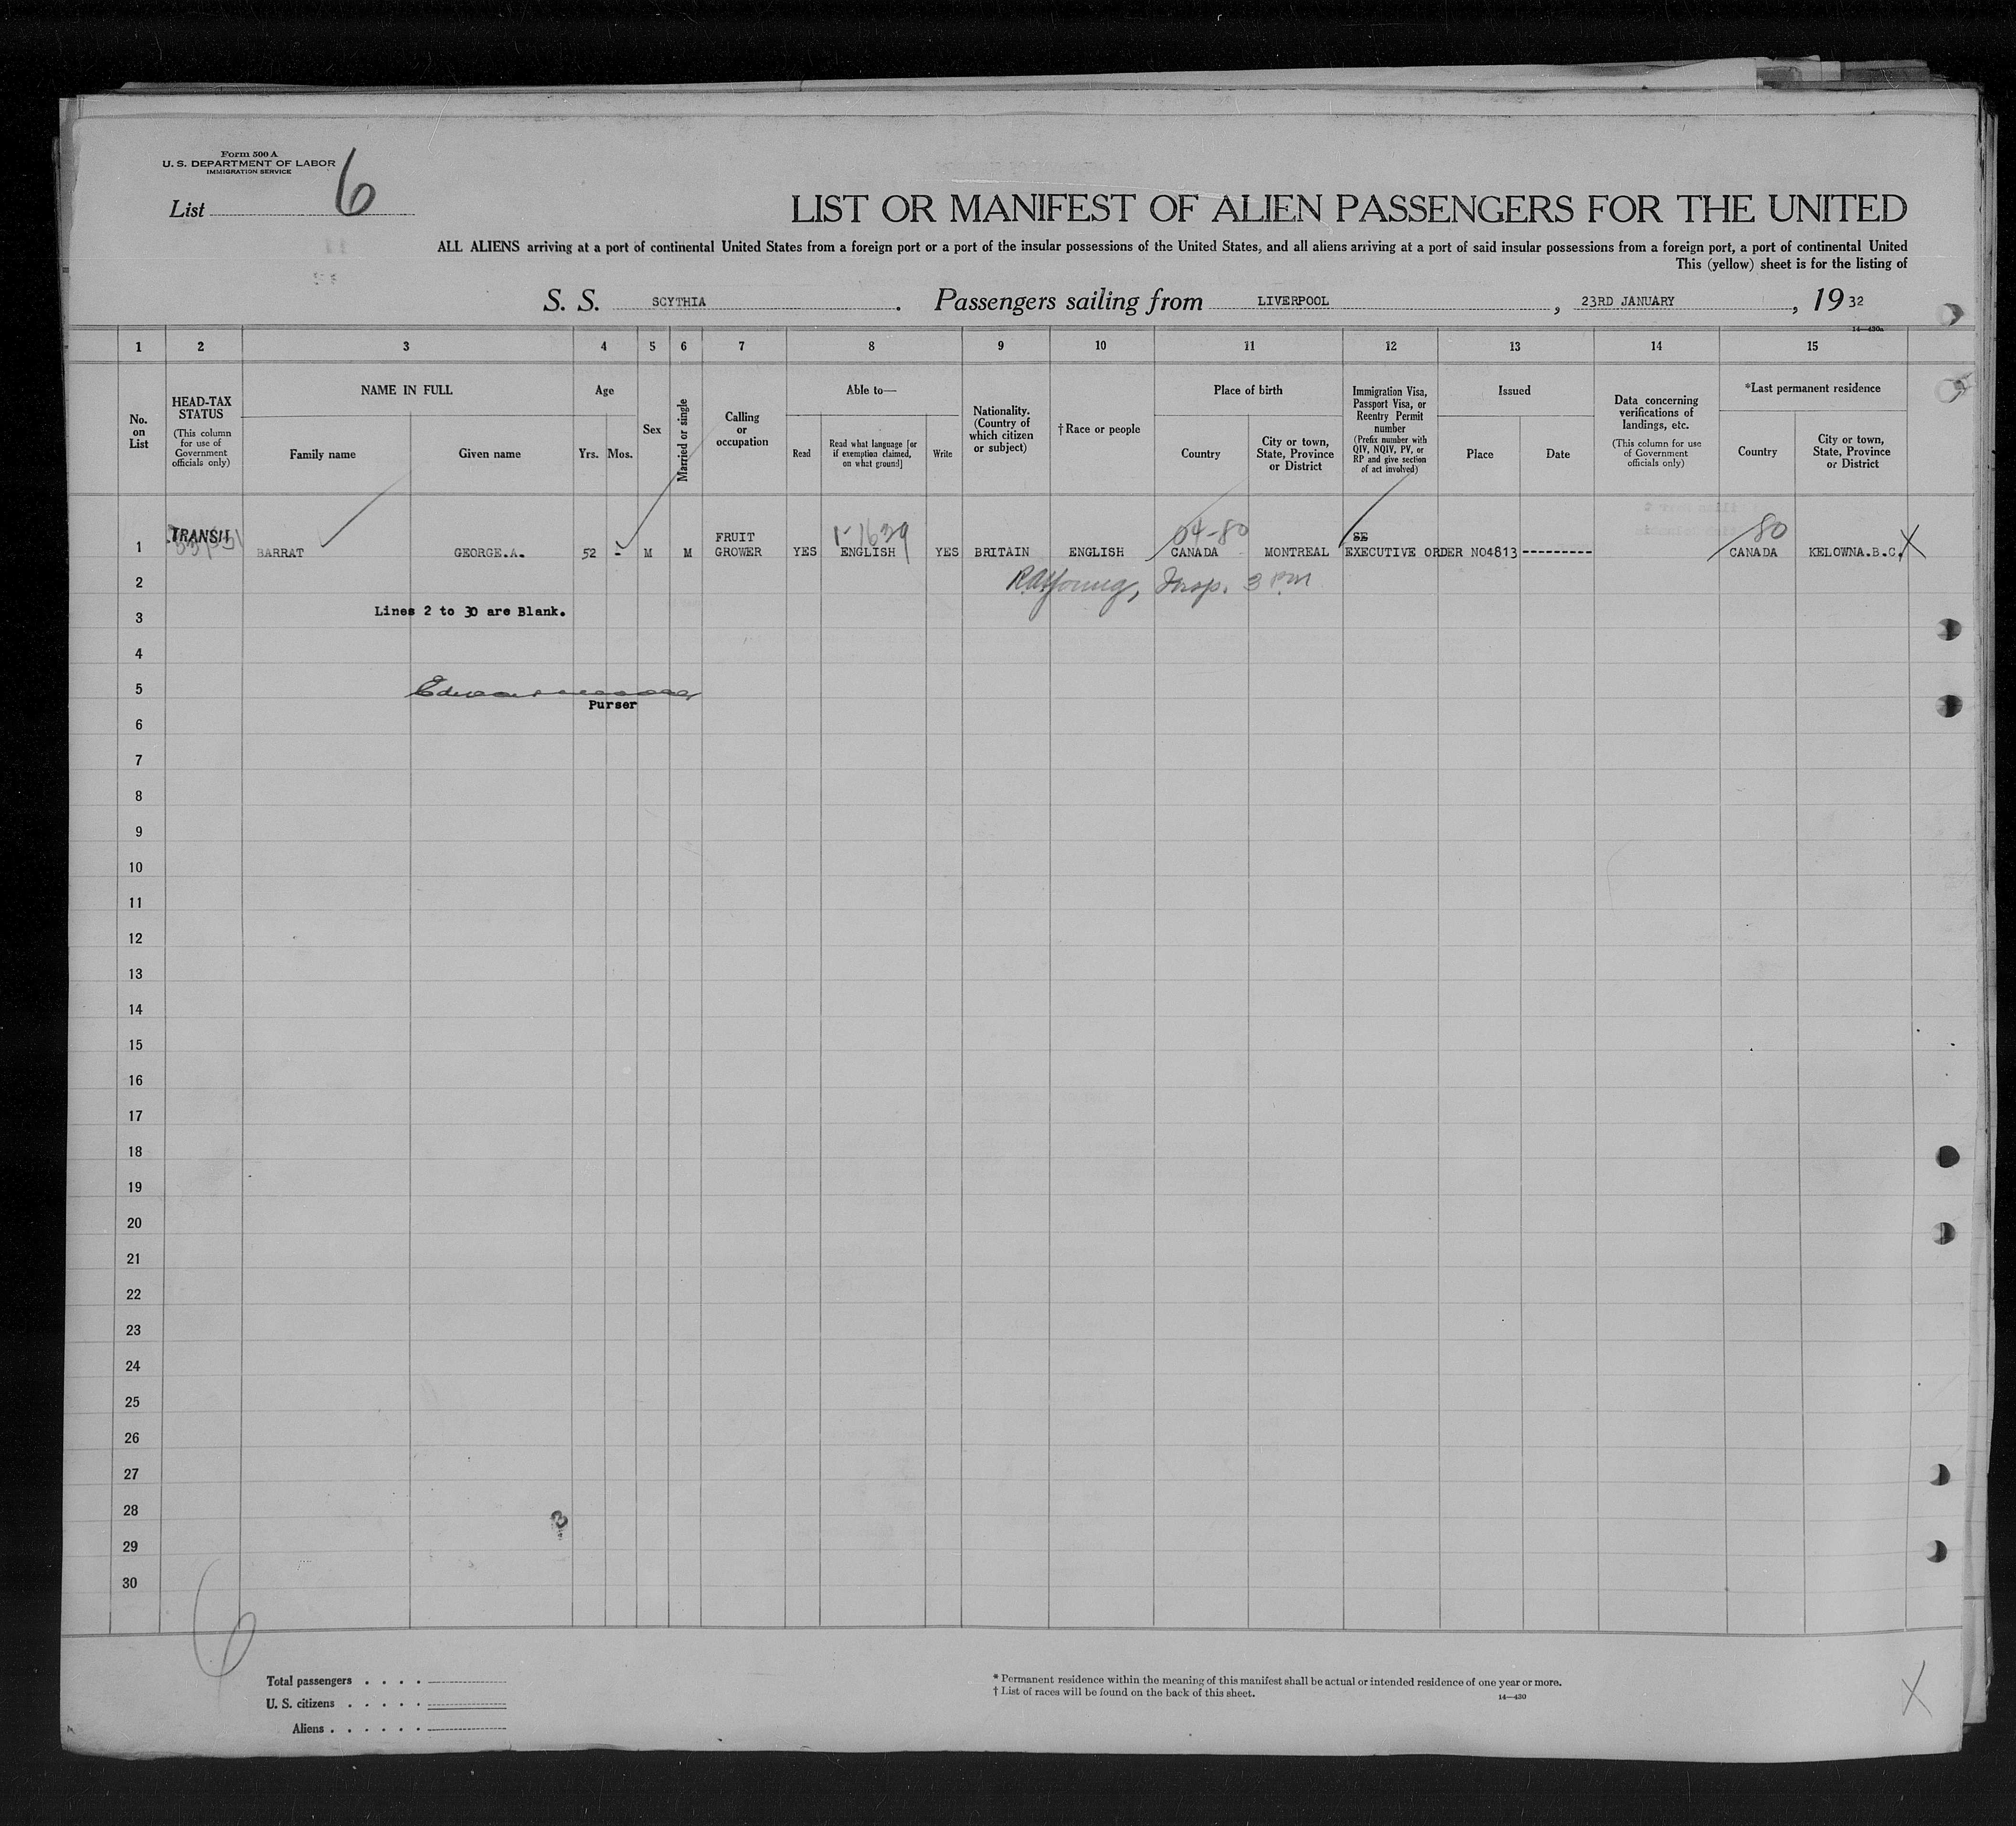 Form 500 A
U. S. DEPARTMENT OF LABOR
IMMIGRATION SERVICE
List 6
LIST OR MANIFEST OF ALIEN PASSENGERS FOR THE UNITED
ALL ALIENS arriving at a port of continental United States from a foreign port or a port of the insular possessions of the United States, and all aliens arriving at a port of said insular possessions from a foreign port, a port of continental United
This (yellow) sheet is for the listing of
S. S. SCYTHIA. Passengers sailing from LIVERPOOL, 23RD JANUARY, 1932
14—430a
1 2 3 4 5 6 7 8 9 10 11 12 13 14 15
No. on List
HEAD-TAX STATUS
(This column for use of Government officials only)
NAME IN FULL
Family name
Given name
Age
Yrs. Mos.
Sex
Married or single
Calling or occupation
Able to—
Read
Read what language [or if exemption claimed, on what ground]
Write
Nationality. (Country of which citizen or subject)
† Race or people
Place of birth
Country
City or town, State, Province or District
Immigration Visa, Passport Visa, or Reentry Permit number
(Prefix number with QIV, NQIV, PV, or RP and give section of act involved)
Issued
Place
Date
Data concerning verifications of landings, etc.
(This column for use of Government officials only)
*Last permanent residence
Country
City or town, State, Province or District
TRANSIT FRUIT 1-1639 04-80 SE 80
1 BARRAT GEORGE.A. 52 - M M GROWER YES ENGLISH YES BRITAIN ENGLISH CANADA MONTREAL EXECUTIVE ORDER NO4813---------- CANADA KELOWNA.B.C. X
2 Young, Insp. 3 PM
Lines 2 to 30 are Blank.
3
4
5
Purser
6
7
8
9
10
11
12
13
14
15
16
17
18
19
20
21
22
23
24
25
26
27
28
3
29
30
6
Total passengers . . . .
U. S. citizens . . . . .
Aliens . . . . . .
* Permanent residence within the meaning of this manifest shall be actual or intended residence of one year or more.
† List of races will be found on the back of this sheet.
14—430
X